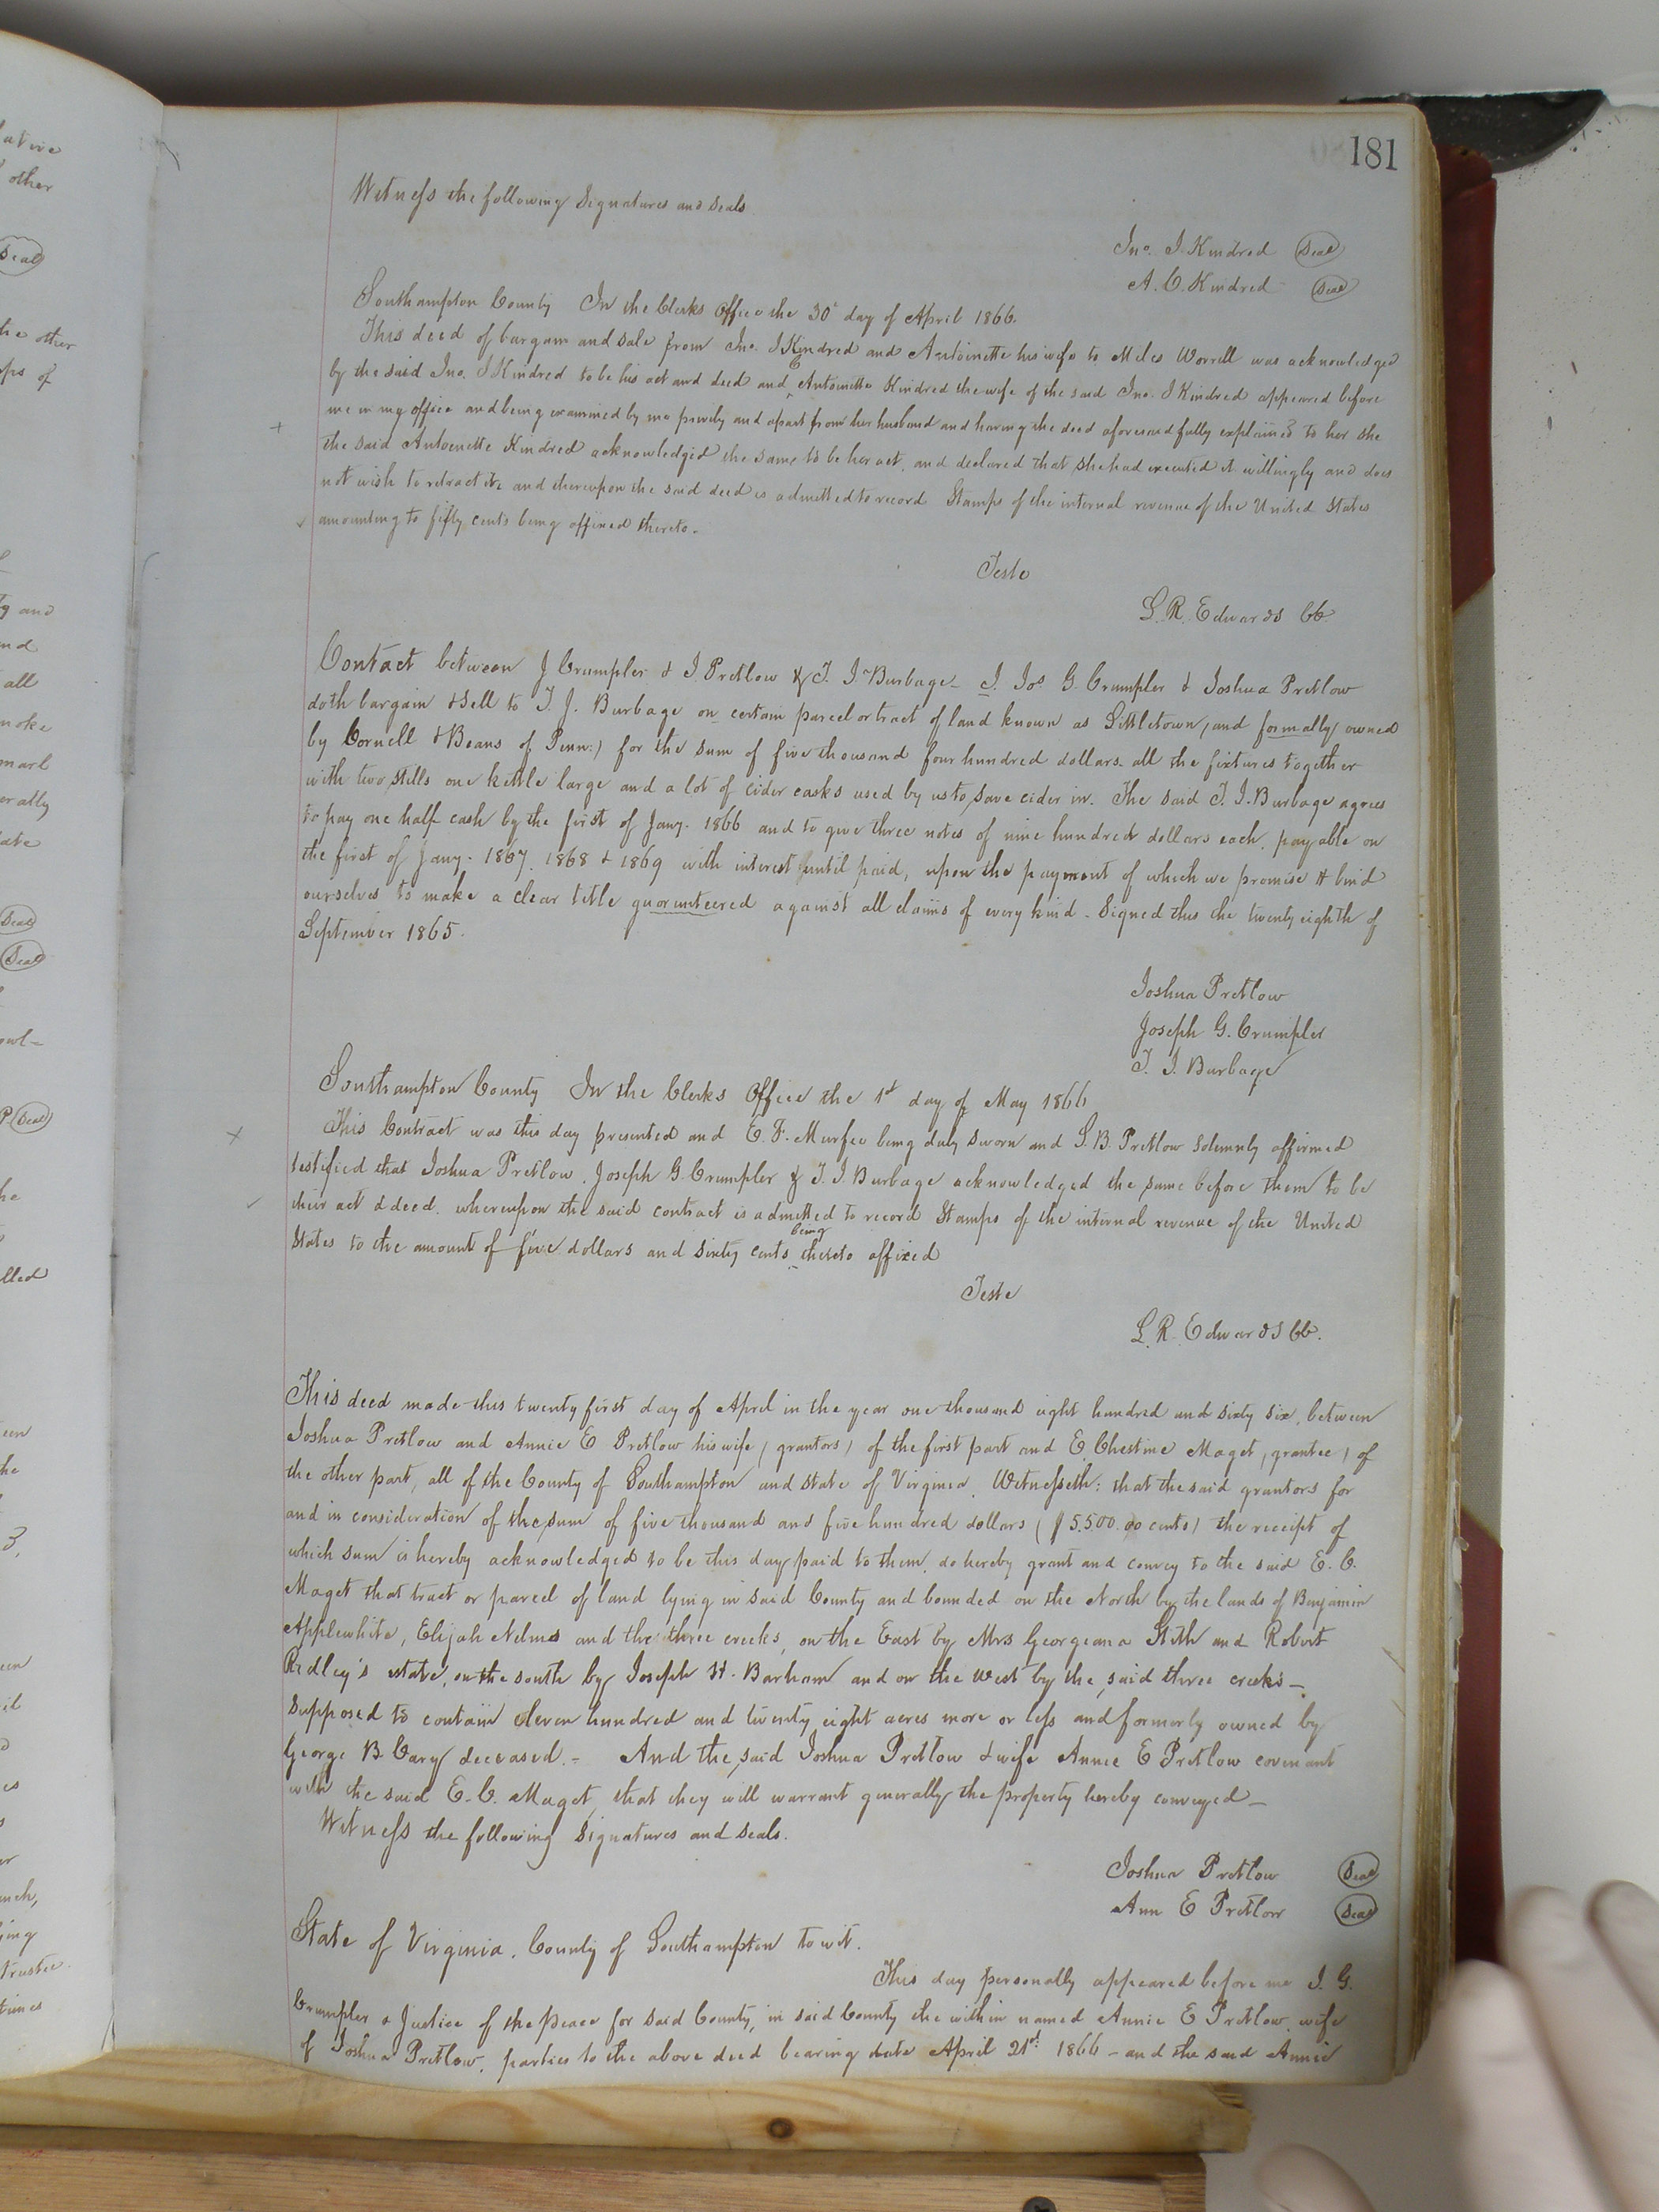 181
Witness the following Signatures and Seals
Jno. J. Kindred (Seal)
A. C. Kindred (Seal)
Southampton County In the Clerks Office the 30th day of April 1866.
This deed of bargain and sale from Jno. J Kindred and Antoinette his wife to Miles Worrell was acknowledged
by the said Jno. J Kindred to be his act and deed and Antoinette C Kindred the wife of the said Jno. J Kindred appeared before
me in my office and being examined by me privily and apart from her husband and having the deed aforesaid fully explained to her she
the said Antoinette Kindred acknowledged the same to be her act, and declared that she had executed it willingly and does
not wish to retract it and thereupon the said deed is admitted to record Stamps of the internal revenue of the United States
amounting to fifty cents being affixed thereto.
Teste
L. R. Edwards CC
Contact between J Crumpler & J Pretlow & T. J. Burbage - I. Jos. G. Crumpler & Joshua Pretlow
doth bargain & sell to T. J. Burbage on certain parcel or tract of land known as Littletown, (and formally owned
by Cornell & Beans of Penn:) for the sum of five thousand four hundred dollars. all the fixtures together
with two stills one kettle large and a lot of cider casks used by us to save cider in. The said T. J. Burbage agrees
to pay one half cash by the first of Jany. 1866 and to give three notes of nine hundred dollars each, payable on
the first of Jany. 1867. 1868 & 1869 with interest until paid, upon the payment of which we promise & bind
ourselves to make a clear title guarunteered against all claims of every kind - Signed this the twenty eighth of
September 1865.
Joshua Pretlow
Joseph G. Crumpler
T. J. Burbage
Southampton County In the Clerks Office the 1st day of May 1866
This Contract was this day presented and E. F. Murfee being duly sworn and S. B. Pretlow solemnly affirmed
testified that Joshua Pretlow, Joseph G. Crumpler & T. J. Burbage acknowledged the same before them to be
their act & deed. whereupon the said contract is admitted to record Stamps of the internal revenue of the United
States to the amount of five dollars and sixty cents being thereto affixed
Teste
L. R. Edwards CC.
This deed made this twenty first day of April in the year one thousand eight hundred and sixty six, between
Joshua Pretlow and Annie E Pretlow his wife (grantors) of the first part and E. Chestine Maget, (grantee) of
the other part, all of the County of Southampton and State of Virginia. Witnesseth: that the said grantors for
and in consideration of the sum of five thousand and five hundred dollars ($5.500.00 cents) the receipt of
which sum is hereby acknowledged to be this day paid to them, do hereby grant and convey to the said E. C.
Maget that tract or parcel of land lying in said County and bounded on the North by the lands of Benjamin
Applewhite, Elijah Nelms and the three creeks, on the East by Mrs Georgeana Stith and Robert
Ridley's estate, on the south by Joseph H. Barham and on the west by the said three creeks -
Supposed to contain eleven hundred and twenty eight acres more or less and formerly owned by
George B Cary deceased. - And the said Joshua Pretlow & wife Annie E Pretlow covenant
with the said E. C. Maget, that they will warrant generally the property hereby conveyed -
Witness the following Signatures and Seals.
Joshua Pretlow (Seal)
Ann E Pretlow (Seal)
State of Virginia. County of Southampton to wit.
This day personally appeared before me J. G.
Crumpler a Justice of the peace for said County, in said County the within named Annie E Pretlow, wife
of Joshua Pretlow, parties to the above deed bearing date April 21st 1866 - and the said Annie